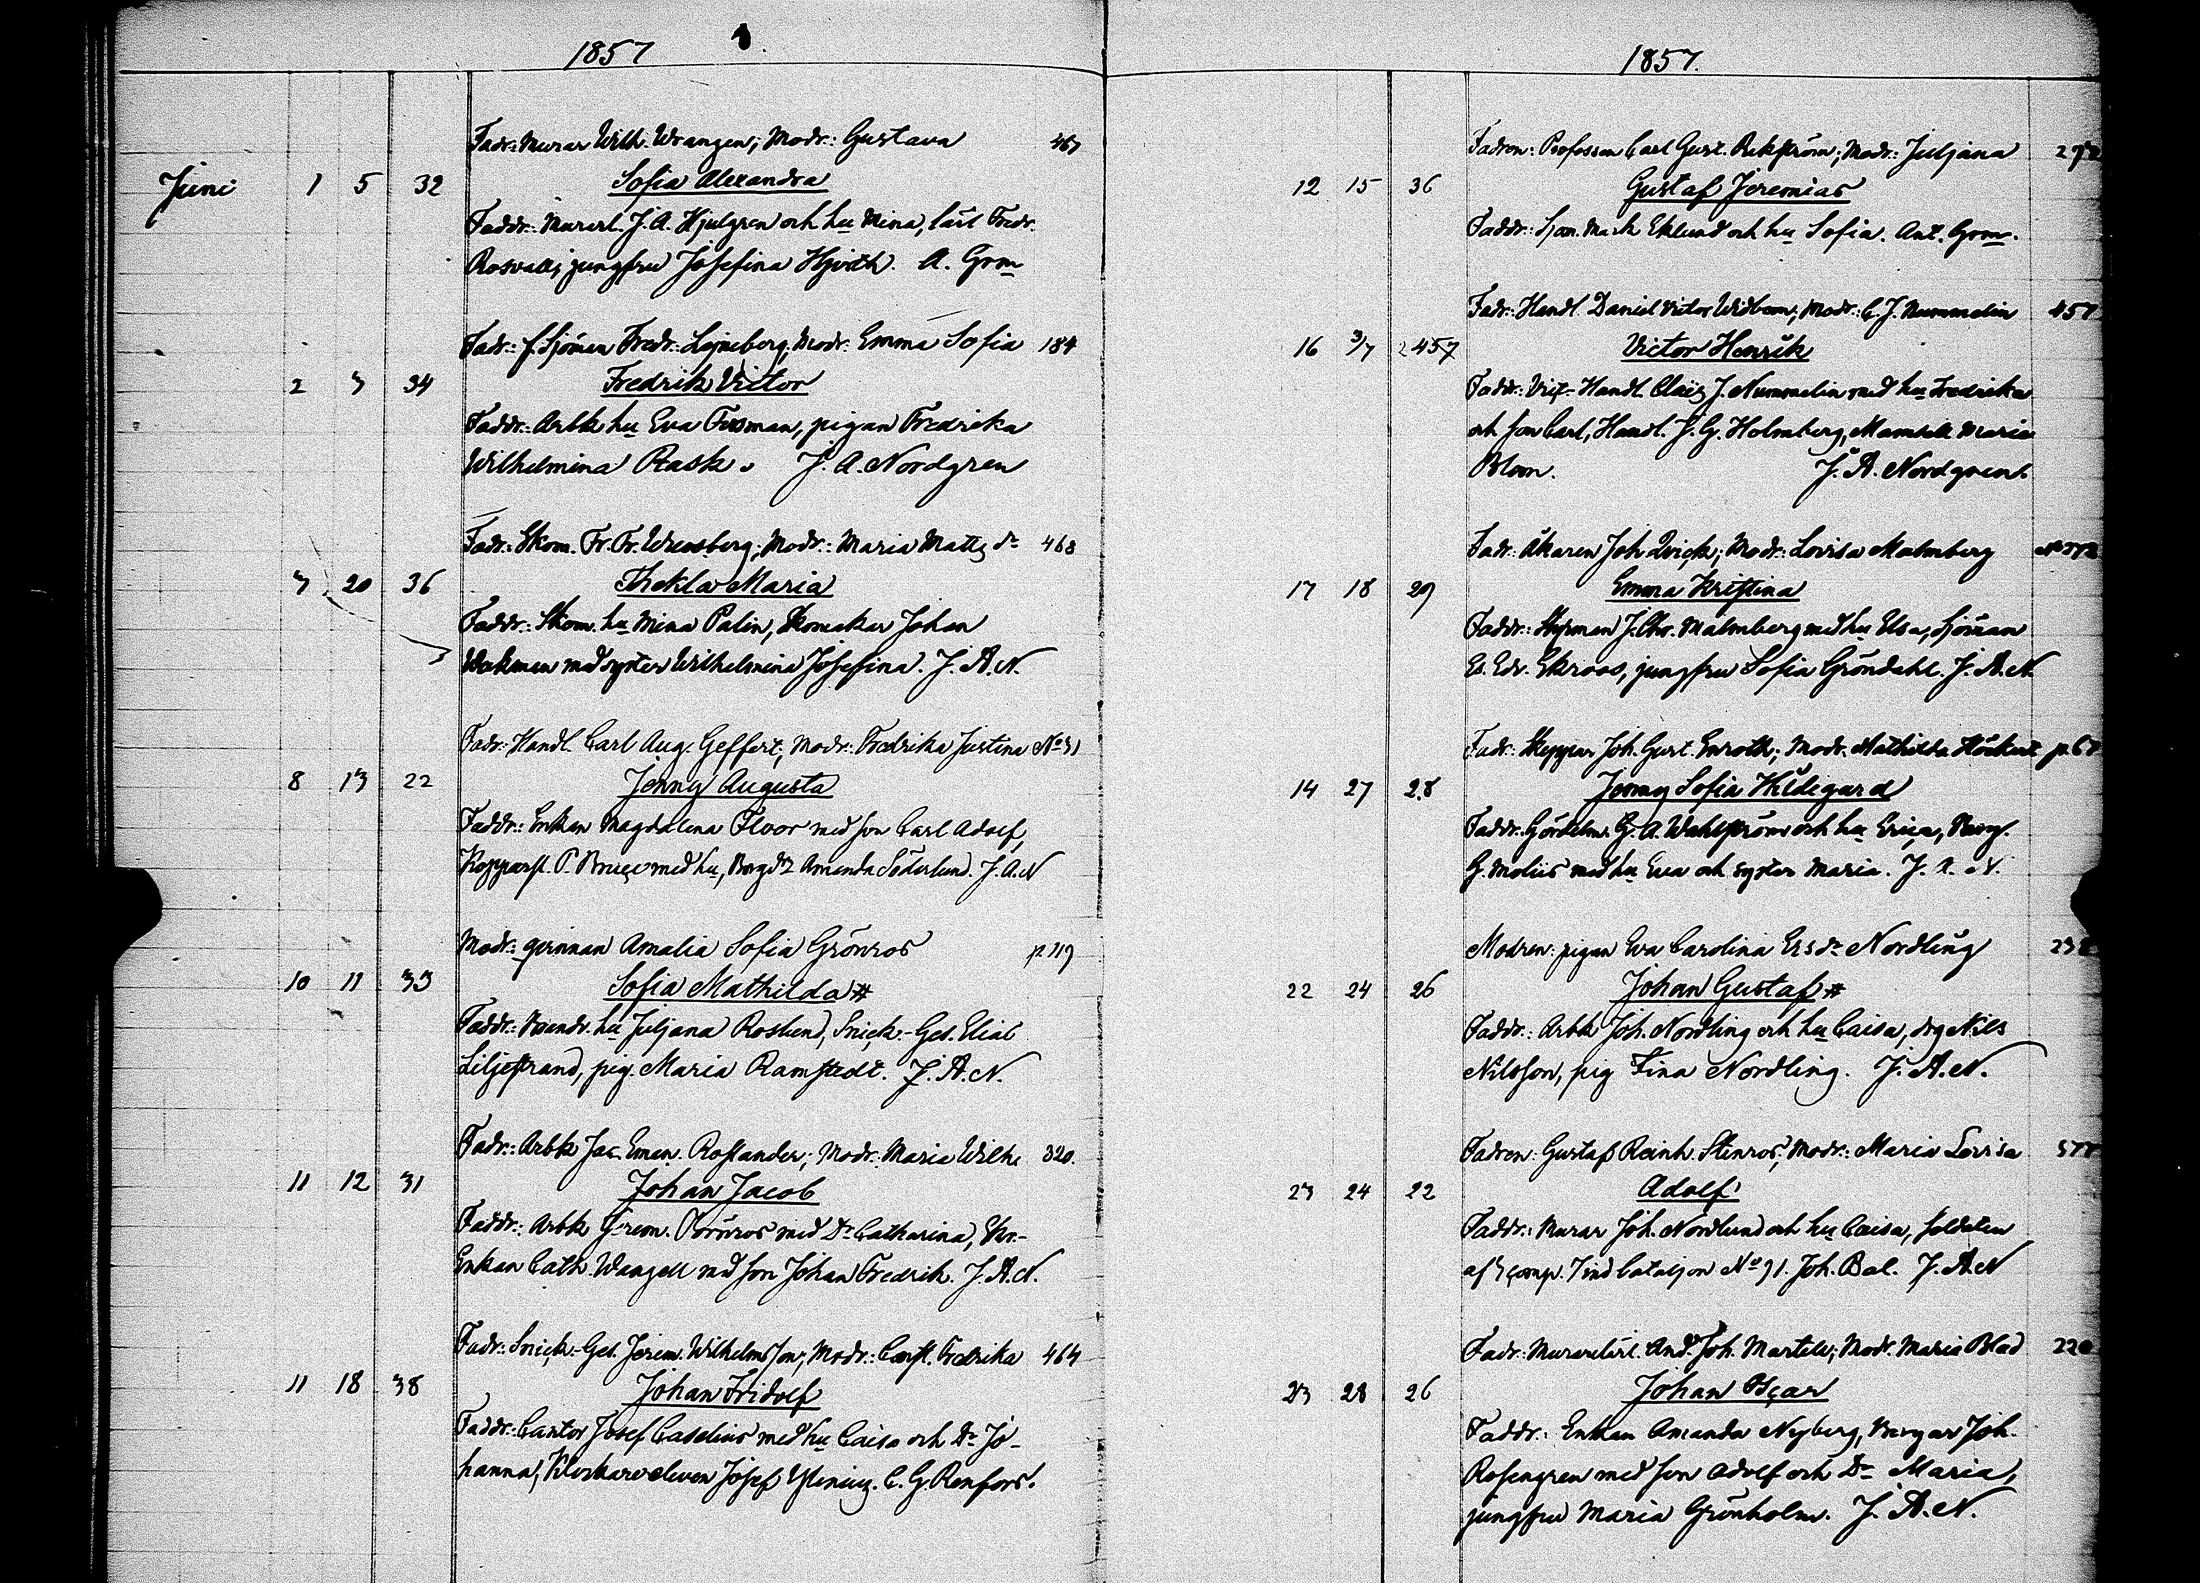 1857
Fadr: Murar Wilh. Wrangen; Modr: Gustava 467
Juni 1 5 32 Sofia Alexandra
Faddr: Murarl. J. A. Hjulgren och hu Mina, lärl Fredr.
Rosvall; jungfru Josefina Hjorth. A. Grm
Fadr: f. Sjöman Fredr. Lejneberg, Modr: Emma Sofia 184
2 3 34 Fredrik Victor
Faddr: Arbk hu Eva Forsman, pigan Fredrika
Wilhelmina Rask. J. A. Nordgren
Fadr: Skom. Fr. Fr. Wrensberg; Modr: Maria Matts dr 468
7 20 36 Thekla Maria
Faddr: Skom. hu Mina Palin, Skomakar Johan
Wakman med syster Wilhelmina Josefina. J. A. N.
Fadr: Handl. Carl Aug. Geffert; Modr: Fredrika Justina No 31
8 13 22 Jenny Augusta
Faddr: Enkan Magdalena Floor med son Carl Adolf,
Kopparsl. P. med hu, Amanda Söderlund. J. A. N
Modr: qvinnan Amalia Sofia Grönros p. 119
10 11 33 Sofia Mathilda #
Faddr: hu Juljana Roslund, Snick.-Ges. Elial
Liljestrand, pig. Maria Ramstedt. J. A. N.
Fadr: Arbk Jac. Eman. Roslander; Modr: Maria Wilhe 320.
11 12 31 Johan Jacob
Faddr: Arbk Jerem. med Dr Catharina,
Enkan Cath. Wangell med son Johan Fredrik. J. A. N.
Fadr: Snick.-Ges. Jerem. Wilhelmsson; Modr: Const. Fredrika 464
11 18 38 Johan Fridolf
Faddr: Cantor Josef Caselius med hu Caisa och Dr Jo-
hanna, Klockareeleven Josef C. G. Renfors.
1857.
Fadren: Professor Carl Gust. Modr: Juljana
12 15 36 Gustaf Jeremias
Faddr: Sjöm. Math Eklund och hu Sofia. Ant. Grm.
Fadr: Handl. Daniel Victor Widbom; Modr: C. J. Nummelin 457
16 3/7 2457 Victor Henrik
Faddr: Handl. J. Nummelin med hu Fredrika
och son Carl, Handl. J. G. Holmberg, Mamsell Maria
Blom. J. A. Nordgrent.
Fadr: Åkaren Joh. Qvick; Modr: Lovisa Malmberg
17 18 29 Emma Kristina
Faddr: Styrman J. Malmberg med hu Elsa, Sjöman
Ekroos, jungfru Sofia Gröndahl. J. A. N.
Fadr: Skeppar Joh. Gust. Enroth; Modr. Mathilda Höckert
14 27 28 Jenny Sofia Hildegard
Faddr: Gördelm. G. A. Wahlström och hu Erica,
G. Molius med hu Eva och syster Maria. J. A. N.
Modren: pigan Eva Carolina Ersdr Nordling
22 24 26 Johan Gustaf #
Faddr: Arbk Joh. Nordling och hu Caisa, drg Nils
Nilsson, pig Fina Nordling. J. A. N.
Fadren: Gustaf Reinh. Stenros; Modr: Maria Lovisa
23 24 22 Adolf
Faddr: Murar Joh. Nordlund och hu Caisa, soldaten
af 3 comp. Finl Bataljon No 91. Joh. Bal. J. A. N
Fadr: Murarelärl. And. Joh. Martelin; Modr. Maria Blad 220
23 28 26 Johan Oscar
Faddr: Enkan Amanda Nyberg, Joh.
Rosengren med son Adolf och Dr Maria,
jungfru Maria Grönholm. J. A. N.